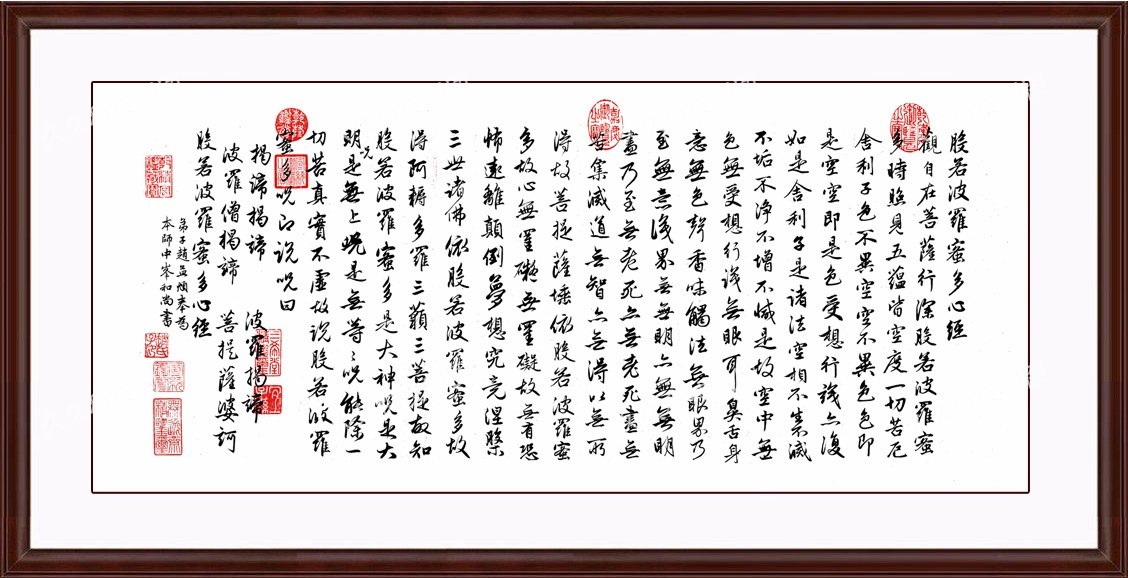 般若波羅蜜多心經
觀自在菩薩行深般若波羅蜜
多時照見五蘊皆空度一切苦厄
舍利子色不異空空不異色色即
是空空即是色受想行識亦復
如是舍利子是諸法空相不生不滅
不垢不淨不增不減是故空中無
色無受想行識無眼耳鼻舌身
意無色聲香味觸法無眼界乃
至無意識界無無明亦無無明
盡乃至無老死亦無老死盡無
苦集滅道無智亦無得以無所
得故菩提薩埵依般若波羅蜜
多故心無罣礙無罣礙故無有恐
怖遠離顛倒夢想究竟涅槃
三世諸佛依般若波羅蜜多故
得阿耨多羅三藐三菩提故知
般若波羅蜜多是大神呪是大
明呪是無上呪是無等々呪能除一
切苦真實不虛故說般若波羅
蜜多呪即說呪曰
揭諦揭諦 波羅揭諦
波羅僧揭諦 菩提薩婆訶
般若波羅蜜多心經
弟子趙孟頫奉為
本師中峯和尚書